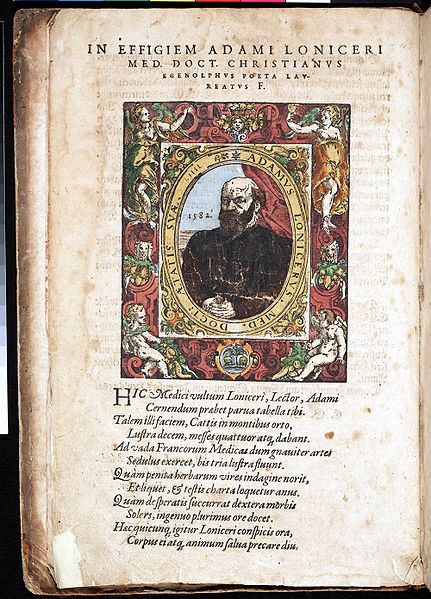 IN EFFIGIEM ADAMI LONICERI
MED. DOCT. CHRISTIANVS
EGENOLPHVS POETA LAV-
REATVS F.
ADAMVS LONICERVS MED. DOCT. ÆTATIS SVÆ
1582
HIC Medici vultum Loniceri, Lector, Adami
Cernendum præbet parua tabella tibi.
Talem illi faciem, Cattis in montibus orto,
Lustra decem, messes quattuor atq; dabant.
Ad vada Francorum Medicas dum gnauiter artes
Sedulus exercet, bis tria lustra fluunt.
Quàm penitæ herbarum vires indagine norit,
Et liquet, & testis charta loquetur anus.
Quàm desperatis succurrat dextera morbis
Solers, ingenuo plurimus ore docet.
Hæc quicunq; igitur Loniceri conspicis ora,
Corpus ei atq; animum salua precare diu.